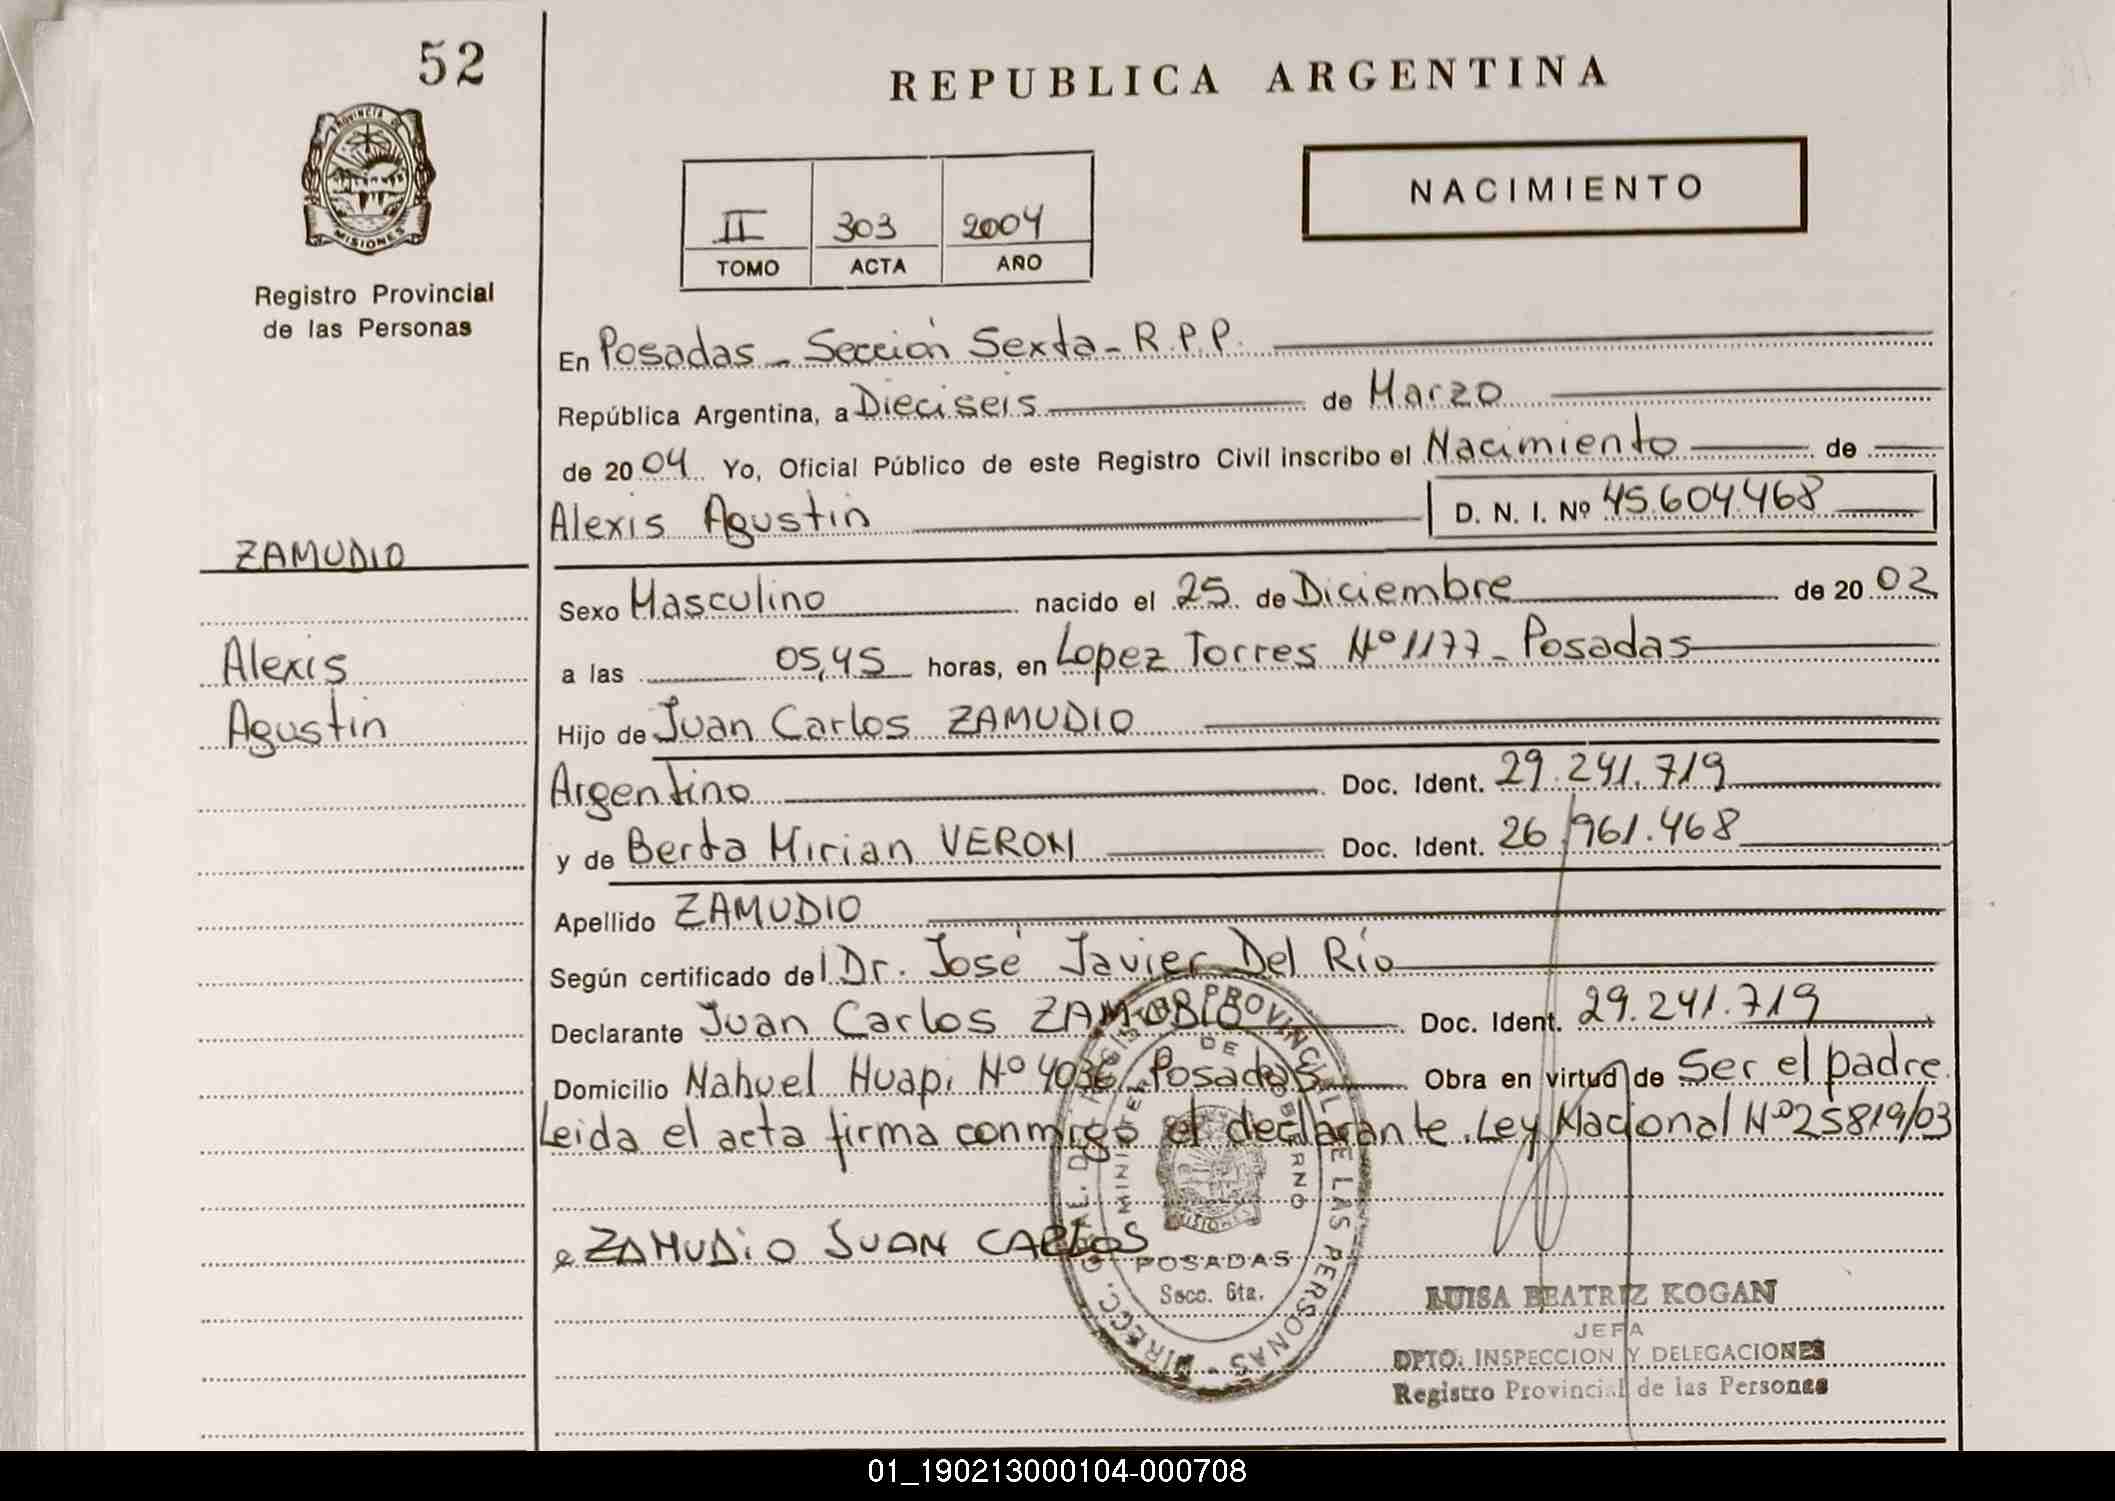 52
REPUBLICA ARGENTINA
PROVINCIA DE
MISIONES
Registro Provincial
de las Personas
NACIMIENTO
II 303 2004
TOMO ACTA AÑO
En Posadas - Sección Sexta - R.P.P.
República Argentina, a Dieciseis de Marzo
de 2004 Yo, Oficial Público de este Registro Civil inscribo el Nacimiento de
Alexis Agustin D. N. I. Nº 45.604.468
ZAMUDIO
Alexis
Agustin
Sexo Masculino nacido el 25 de Diciembre de 2002
a las 05,45 horas, en Lopez Torres Nº 1177 - Posadas
Hijo de Juan Carlos ZAMUDIO
Argentino Doc. Ident. 29.241.719
y de Berta Mirian VERON Doc. Ident. 26.961.468
Apellido ZAMUDIO
Según certificado del Dr. José Javier Del Río
Declarante Juan Carlos ZAMUDIO Doc. Ident. 29.241.719
Domicilio Nahuel Huapi Nº 4036 - Posadas Obra en virtud de Ser el padre.
Leida el acta firma conmigo el declarante. Ley Nacional Nº 25819/03
ZAMUDiO JUAN CARLOS
DIRECC. GRAL. DEL REGISTRO PROVINCIAL DE LAS PERSONAS
MINISTERIO DE GOBIERNO
MISIONES
POSADAS
Secc. 6ta.
LUISA BEATRIZ KOGAN
JEFA
DPTO. INSPECCION Y DELEGACIONES
Registro Provincial de las Personas
01_190213000104-000708